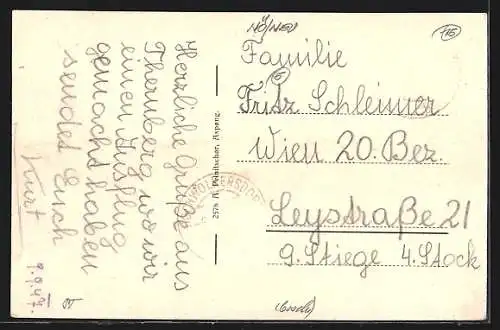 Herzliche Grüße aus
Thernberg wo wir
einen Ausflug
gemacht haben
sendet Euch
Kurt
9.9.47.
2578 P. Peinitscher, Aspang.
NÖ/NEU
Familie
Fritz Schleimer
Wien 20. Bez.
Leystraße 21
9. Stiege 4. Stock